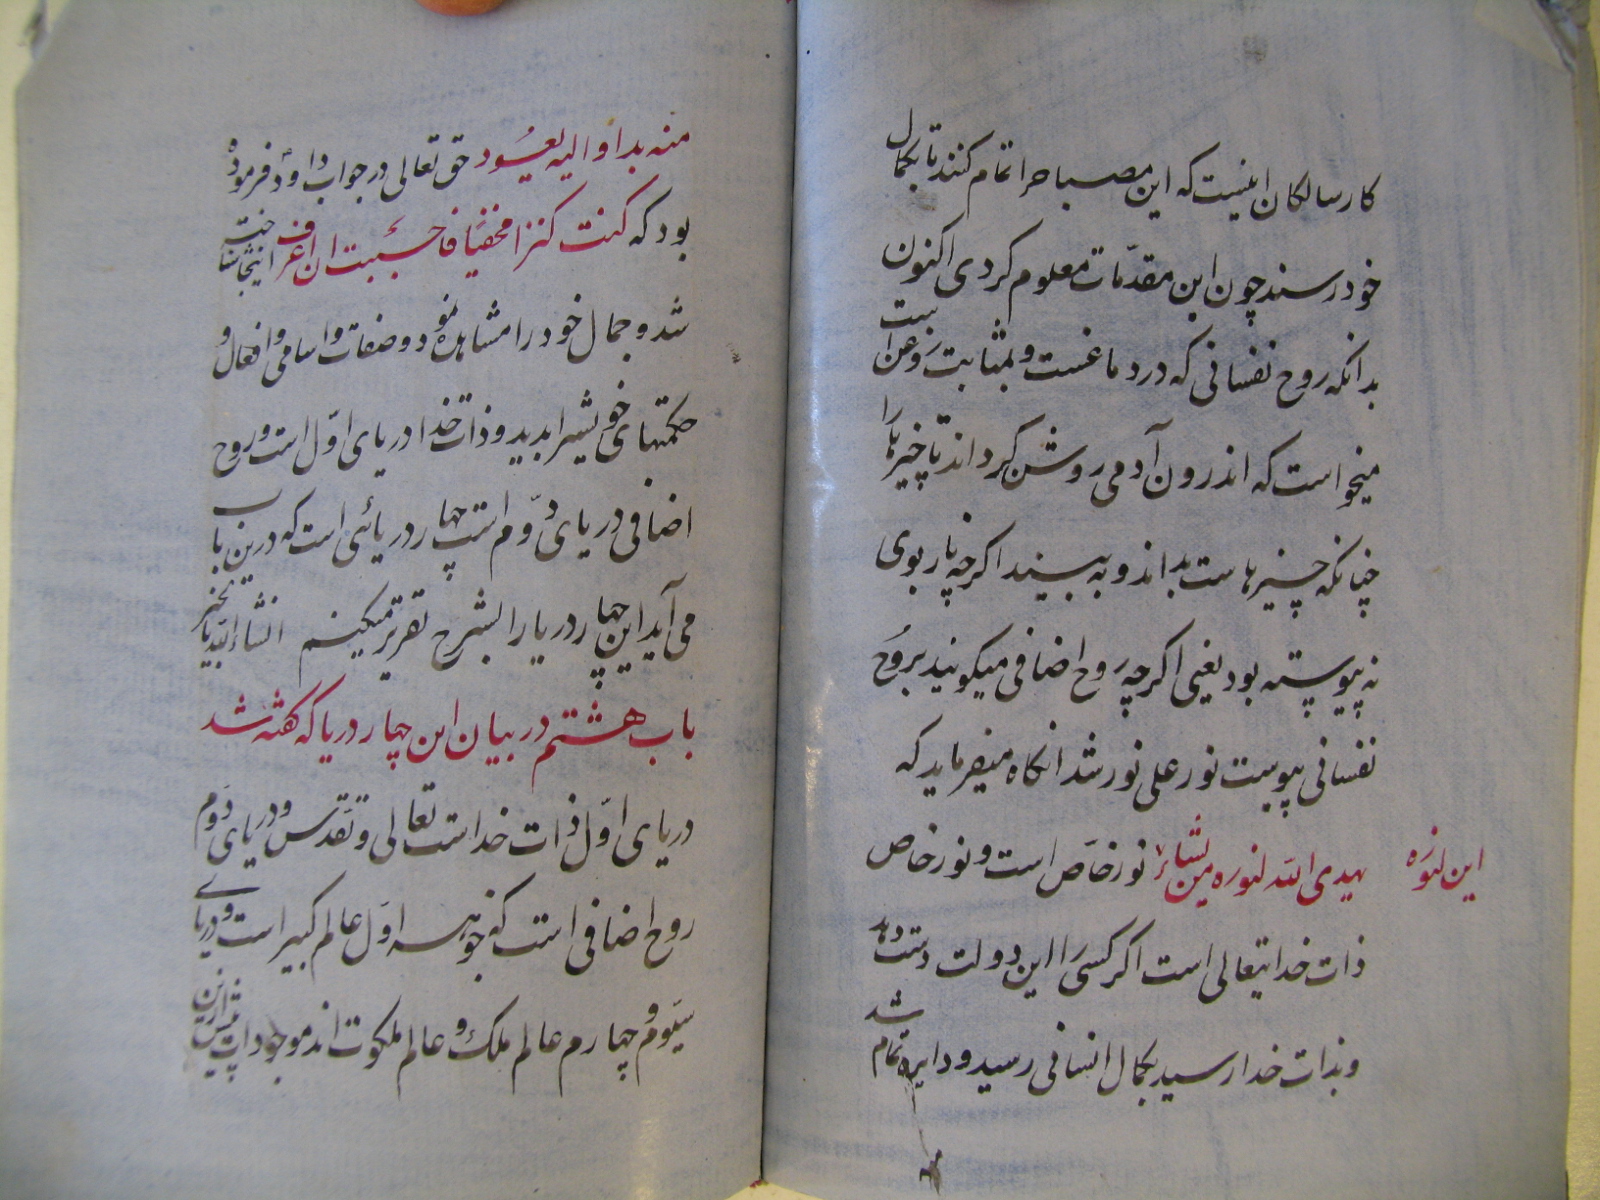 کار سالکان اینست که این مصباح را تمام کنند تا بکمال
خود رسند چون این مقدّمات معلوم کردی اکنون
بدانکه روح نفسانی که در دماغست و بمثابت روغن است
میخواست که اندرون آدمی روشن کرداند تا چیزها را
چنانکه چیزهاست بداند و به بیند اکرچه پار بوی
نه پیوسته بود یعنی اکرچه روح اضافی میکویند بروح
نفسانی پیوست نور علی نور شد انکاه میفرماید که
یهدی الله لنوره من یشاء نور خاص است و نور خاص
این لنوره
ذات خدایتعالی است اکر کسی را این دولت دست دهد
و بذات خدا رسید بکمال انسانی رسید و دایره تمام شد
منه بدا و الیه یعود حق تعالی در جواب داود فرموده
بود که کنت کنزا مخفیا فاحببت ان اعرف اینجا شناخته
شد و جمال خود را مشاهده نمود و صفات و اسامی و افعال و
حکمتهای خویش را بدید و ذات خدا دریای اوّل است و روح
اضافی دریای دوّم است چهار دریائی است که درین باب
می آید این چهار دریا را بشرح تقریر میکینم انشاءالله بالخیر
باب هشتم در بیان این چهار دریا که کفته شد
دریای اوّل ذات خداست تعالی و تقدس و دریای دوّم
روح اضافی است که جوهر اوّل عالم کبیر است و دریای
سیوم و چهارم عالم ملک و عالم ملکوت اند موجودات بیش ازین